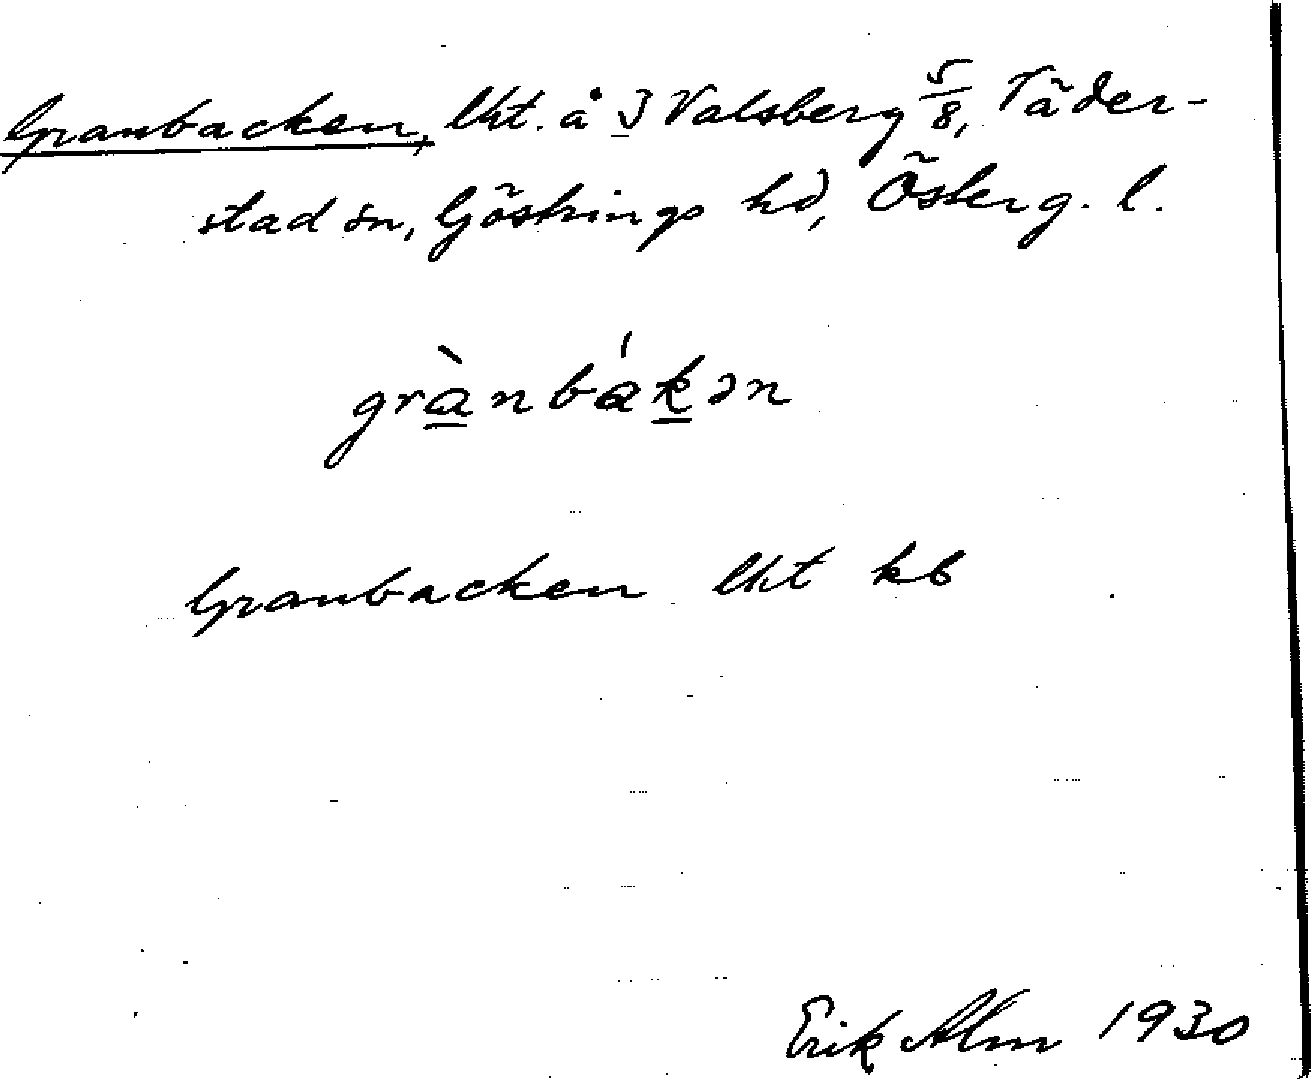 Granbacken, lht. å J Valsberg 5/8, Väder-
stad sn, Göstrings hd, Österg. l.
grànbákən
Granbacken lht kb
Erik Alm 1930